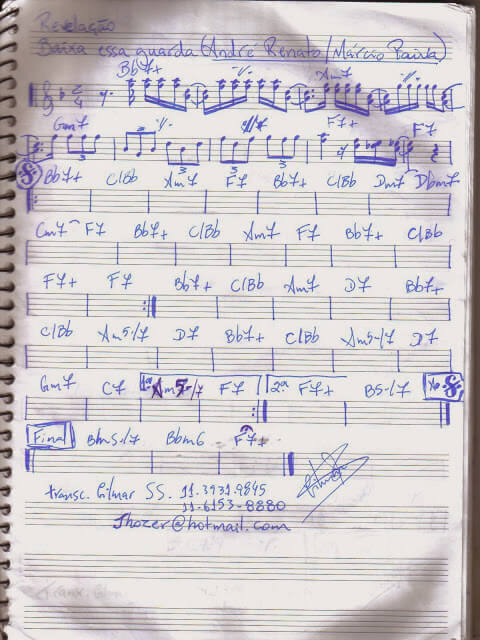 Revelação
Baixa essa guarda (André Renato / Márcio Paiva)
Bb7+ Am7
2/4
Gm7 F7+ F7
3 3 3
Bb7+ C/Bb Am7 F7 Bb7+ C/Bb Dm7 Dbm7
Cm7 F7 Bb7+ C/Bb Am7 F7 Bb7+ C/Bb
F7+ F7 Bb7+ C/Bb Am7 D7 Bb7+
C/Bb Am5-/7 D7 Bb7+ C/Bb Am5-/7 D7
Gm7 C7 1ª Am5-/7 F7 2ª F7+ B5-/7 Ao
Final Bbm5-/7 Bbm6 F7+
transc. Gilmar SS. 11.3931.9845
11-6153-8880
Jhozer@hotmail.com